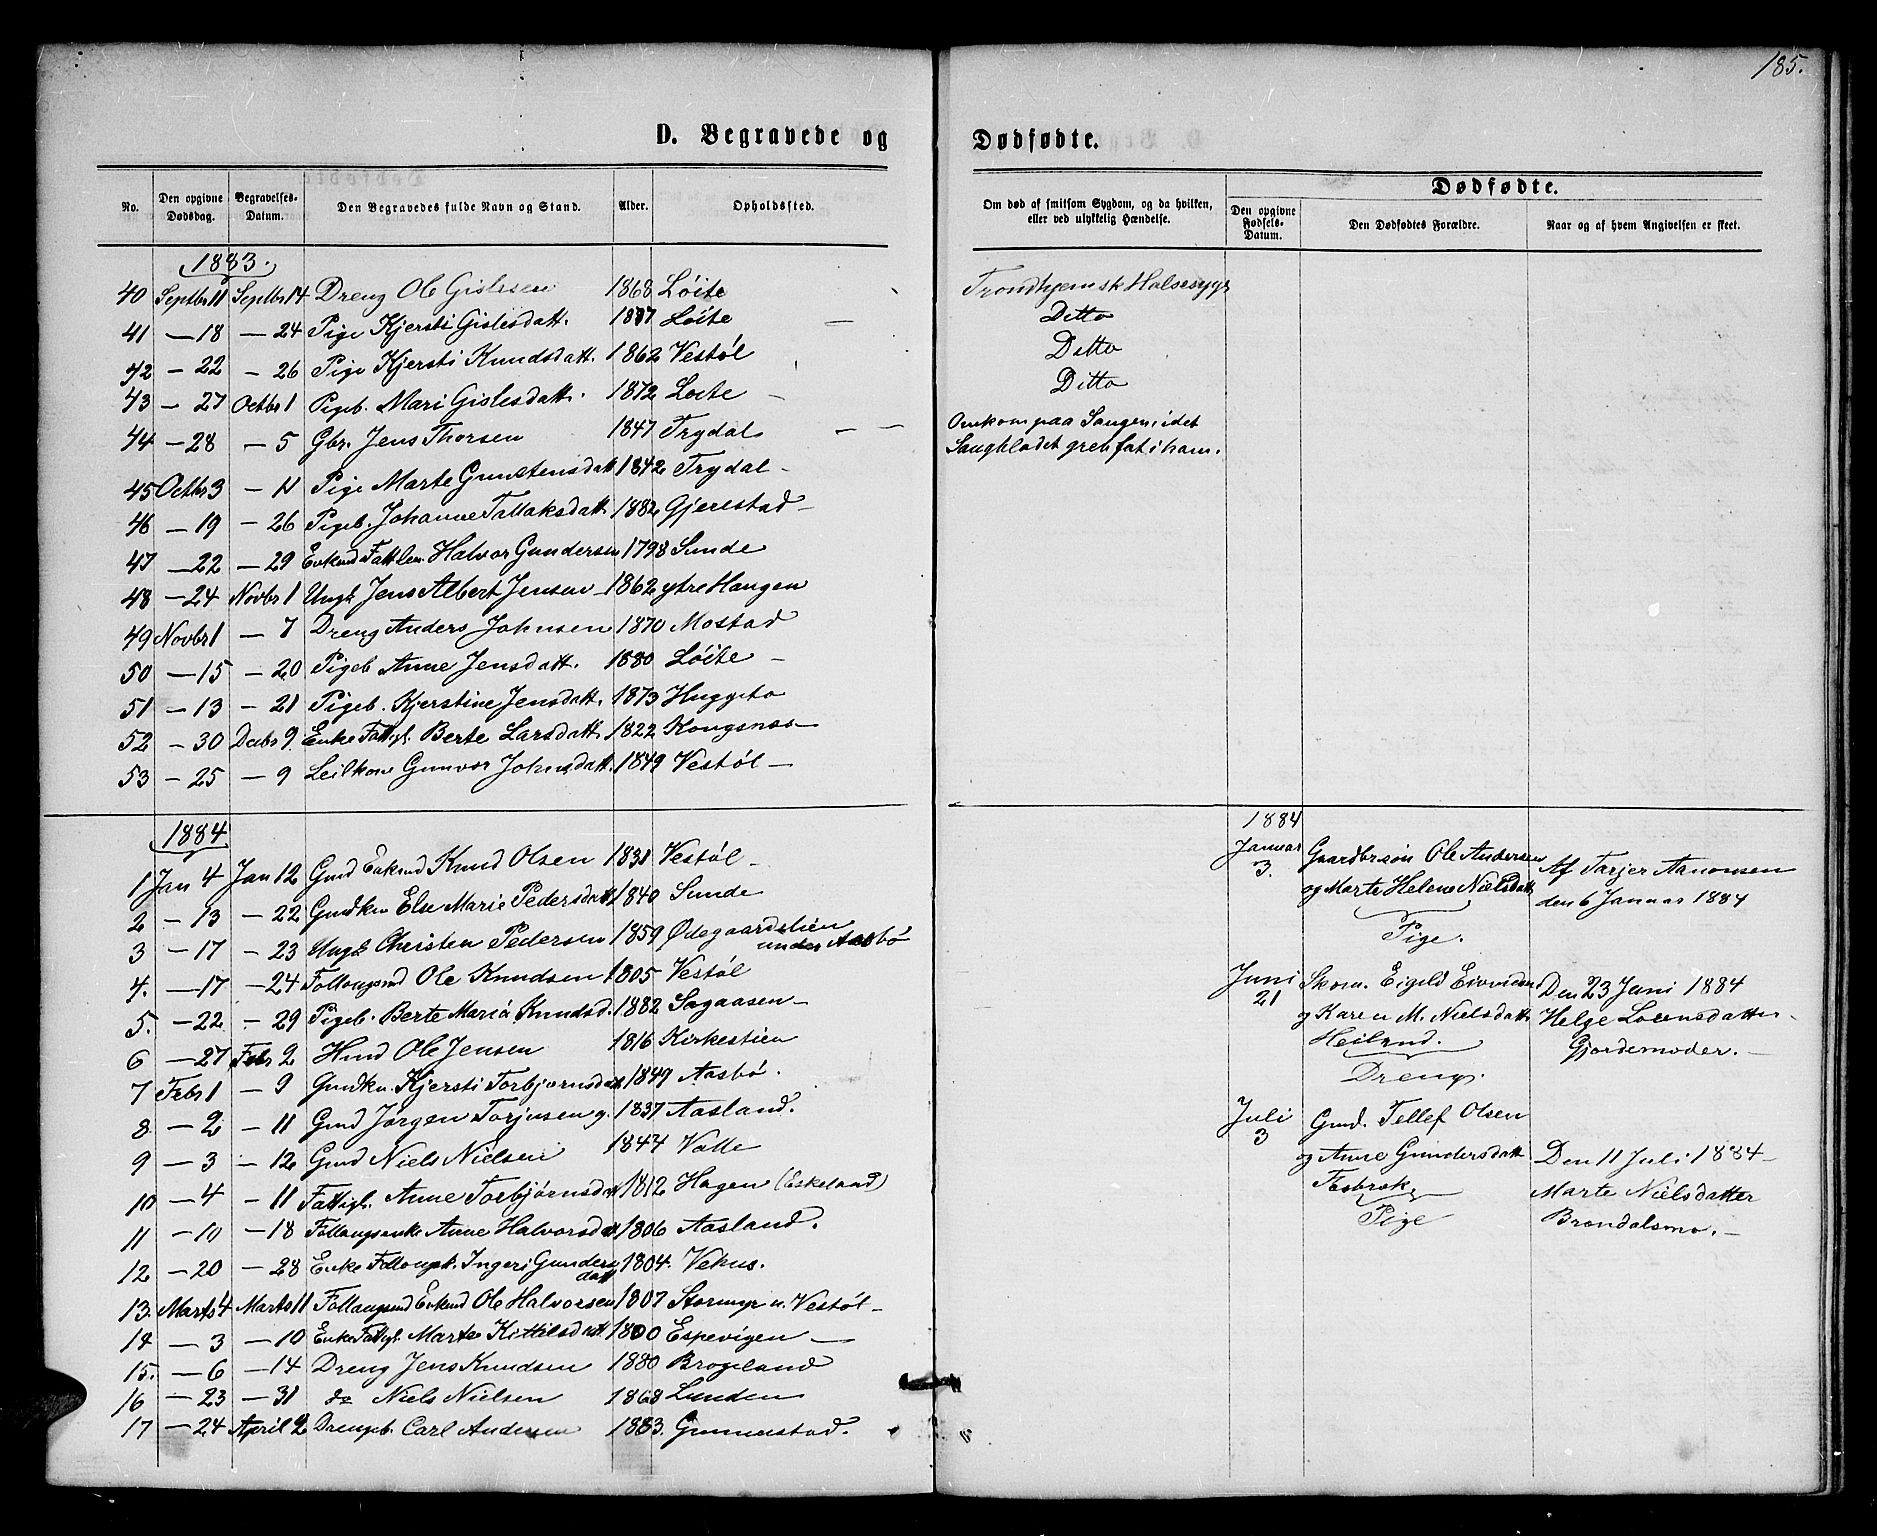 185.
D. Begravede og Dødfødte.
No. Den opgivne Dødsdag. Begravelses-Datum. Den Begravedes fulde Navn og Stand. Alder. Opholdssted. Om død af smitsom Sygdom, og da hvilken, eller ved ulykkelig Hændelse.
Dødfødte.
Den opgivne Fødsels-Datum. Den Dødfødtes Forældre. Naar og af hvem Angivelsen er skeet.
1883.
40 Septbr 11 Septbr 14 Dreng Ole Gislesen 1868 Löite Trondhjemsk Halsesyge
41 — 18 — 24 Pige Kjersti Gislesdatt. 1877 Löite — Ditto
42 — 22 — 26 Pige Kjersti Knudsdatt. 1862 Vestöl Ditto
43 — 27 Octbr 1 Pigeb. Mari Gislesdatt. 1872 Löite — Ditto
44 — 28 — 5 Gbr. Jens Thorsen 1847 Trydal — — Omkom paa Saugen, idet
Saugbladet greb fat i ham.
45 Octbr 3 — 11 Pige Marte Gunstensdatt 1842 Trydal —
46 — 19 — 26 Pigeb. Johanne Tallaksdatt 1882 Gjerestad —
47 — 22 — 29 Enkmd Fattlem Halvor Gundersen 1798 Sunde
48 — 24 Novbr 1 Ungk Jens Albert Jensen — 1862 ytre Haugen
49 Novbr 1 — 7 Dreng Anders Johnsen 1870 Mostad
50 — 15 — 20 Pigeb Anne Jensdatt. 1880 Löite —
51 — 13 — 21 Pigeb. Kjerstine Jensdatt. 1873 Huggeto
52 — 30 Decbr 9 Enke Fattigl. Berte Larsdatt 1822 Kongsnæs —
53 — 25 — 9 Leilkone Gunvor Johnsdatt. 1849 Vestöl —
1884
1 Jan 4 Jan 12 Gmd Enkmd Knud Olsen 1831 Vestöl —
2 — 13 — 22 Gmdkn Else Marie Pedersdatt 1840 Sunde
3 — 17 — 23 Ungk Christen Pedersen 1859 Ödegaardslien
under Aasbö
4. — 17 — 24 Follaugsmd Ole Knudsen 1805 Vestöl
5. — 22 — 29 Pigeb. Berte Maria Knudsd. 1882 Sagaasen —
6 — 27 Febr 2 Hmd Ole Jensen 1816 Kirkestien
7 Febr 1 — 9 Gmdkn. Kjersti Torbjørnsdatt 1849 Aasbö.
8 — 2 — 11 Gmd Jørgen Torjusen g. 1837 Aasland.
9 — 3 — 12 Gmd Niels Nielsen 1847 Valle
10 — 4 — 11 Fattigl. Anne Torbjørnsdatt 1812 Hagen (Eskeland)
11 — 10 — 18 Follaugsenke Anne Halvorsdatt 1806 Aasland.
12 — 20 — 28 Enke Follaugsk. Ingeri Gunders
datt 1804. Vehus.
13. Marts 4 Marts 11 Follaugsmd Enkmd Ole Halvorsen 1807 Stormyr u. Vestöl —
14 — 3 — 10 Enke Fattigl. Marte Kittilsdatt 1800 Espevigen —
15. — 6 — 14 Dreng Jens Knudsen 1880 Brogeland
16 — 23 — 31 do Niels Nielsen 1868 Lunden
17 — 24 April 2 Drengeb. Carl Andersen 1883. Gunnerstad.
1884
Januar 3. Gaardbrsön Ole Andersen
og Marte Helene Nielsdatt
Pige.
Af Tarjer Aanonsen
den 6 Januar 1884
Juni 21 Skom. Eigeld Eivindsen
og Karen M. Nielsdatt
Heiland.
Dreng.
Den 23 Juni 1884
Helge Lorensdatter
Gjordemoder. —
Juli 3 Gmd. Tellef Olsen
og Anne Gundersdatt
Pige
Den 11 Juli 1884 —
Marte Nielsdatter
Brøndalsmo. —